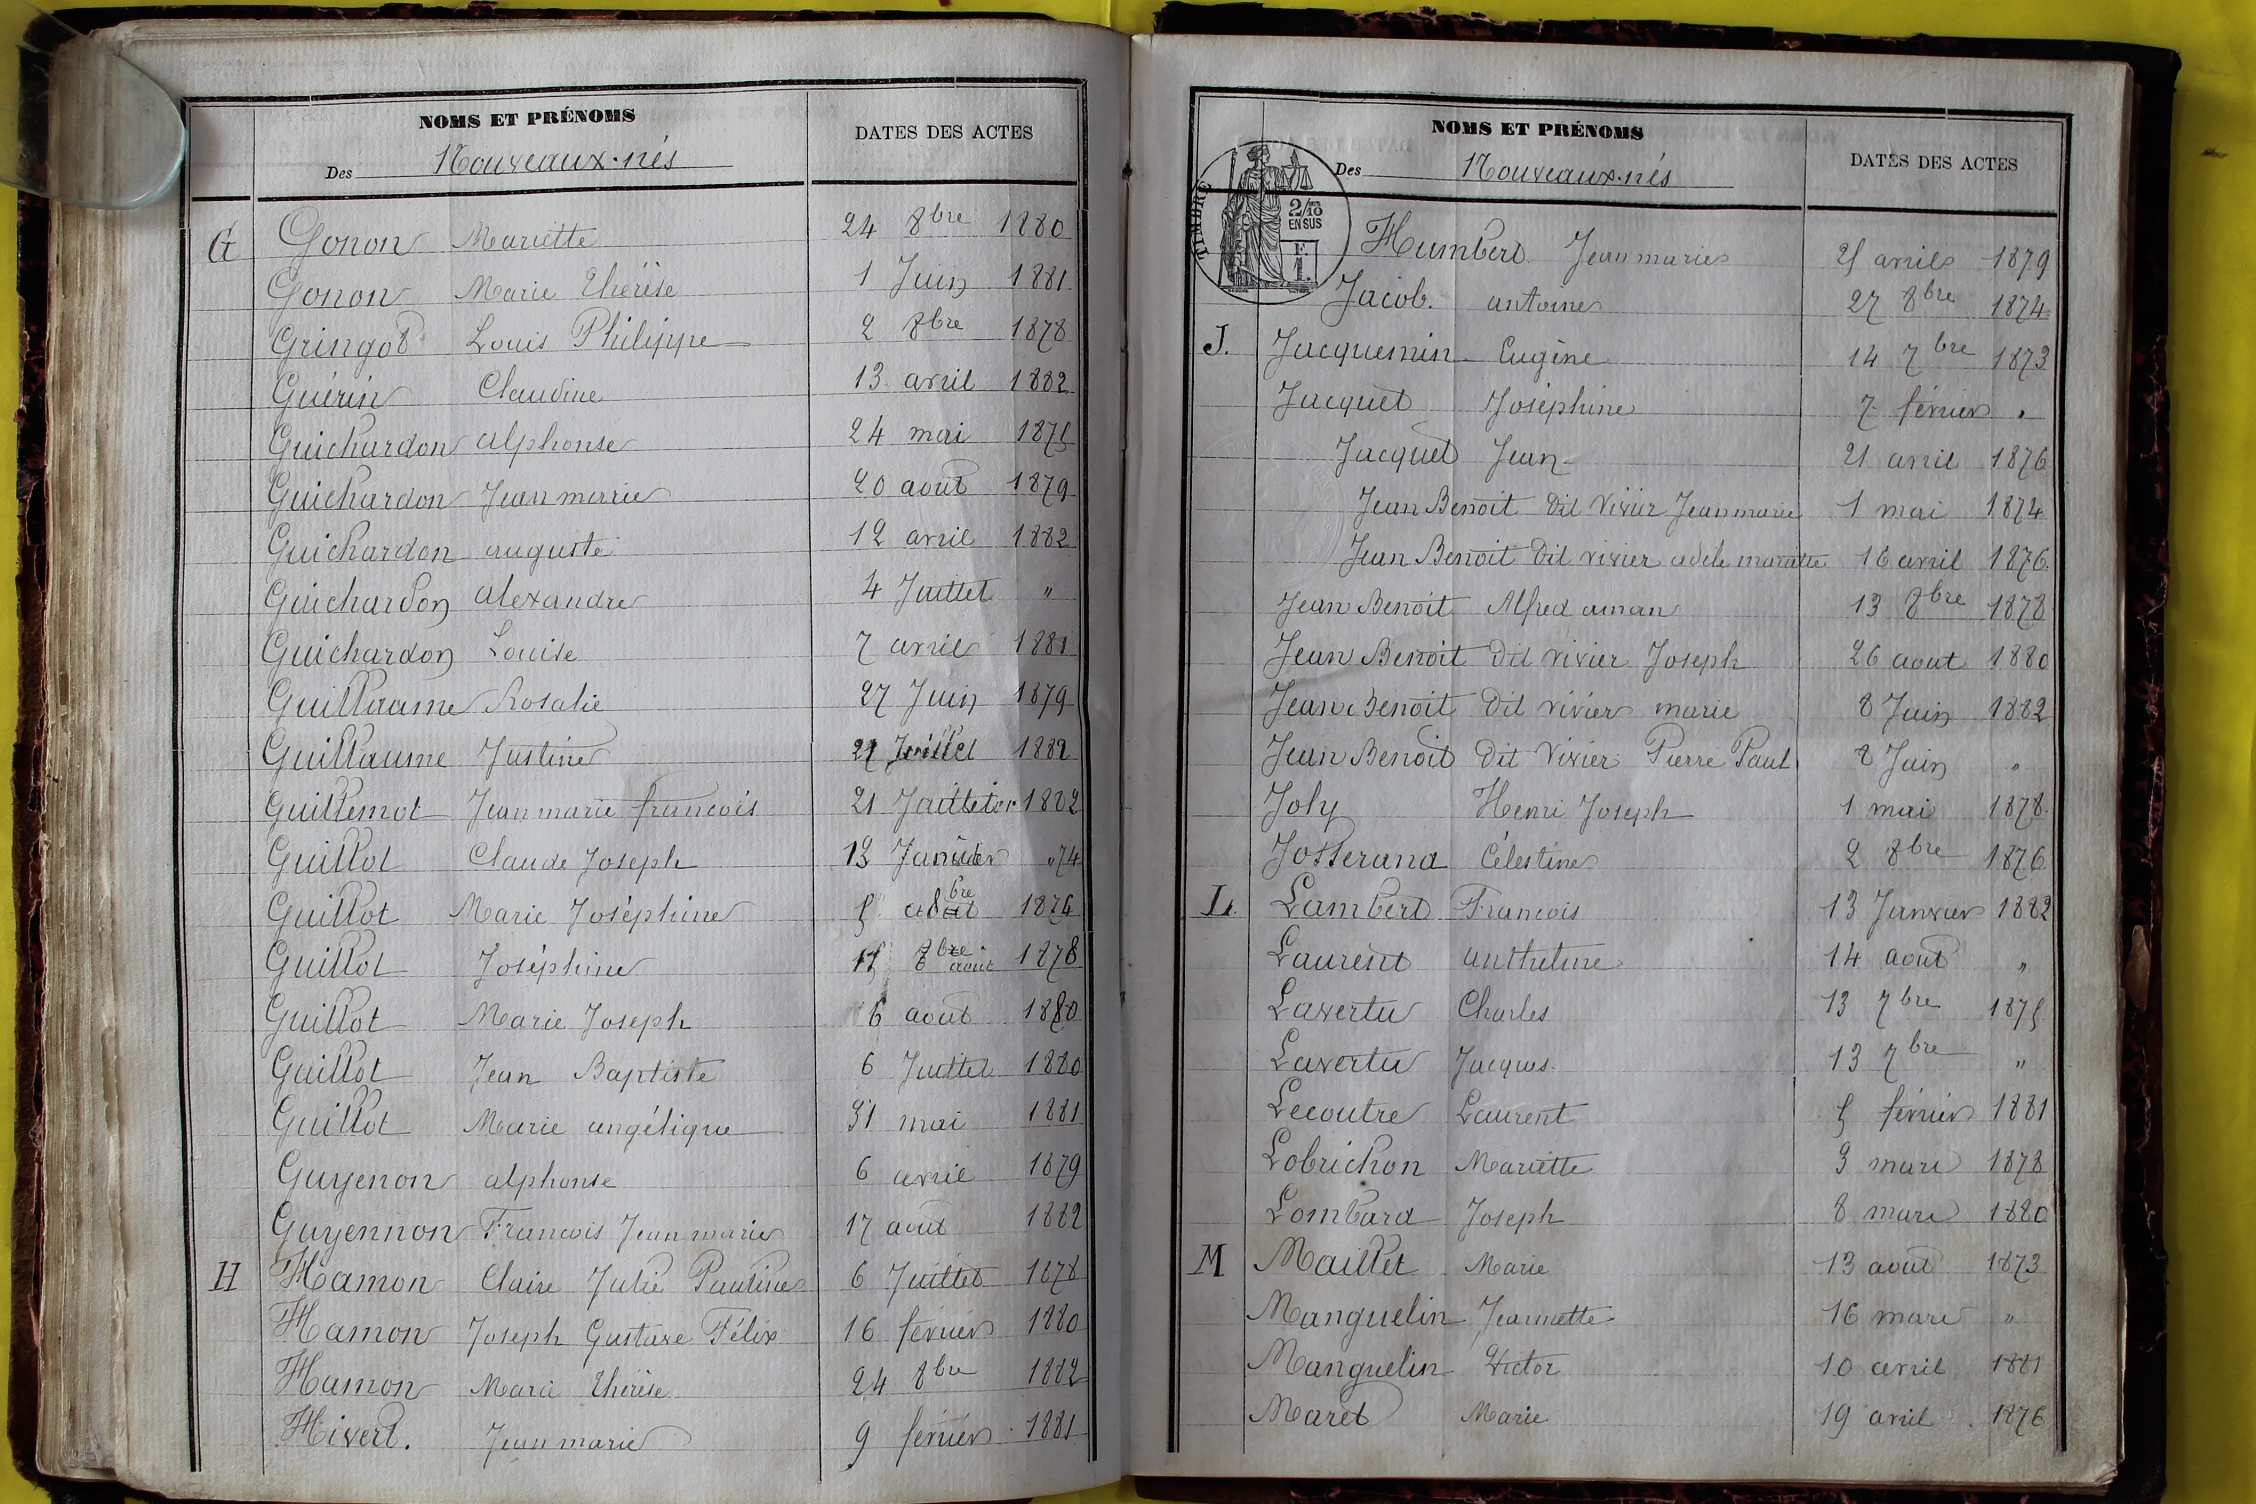 NOMS ET PRÉNOMS
Des Nouveaux-nés
DATES DES ACTES
G Gonon Mariette 24 8bre 1880
Gonon Marie Thérèse 1 Juin 1881
Gringod Louis Philippe 2 8bre 1878
Guérin Claudine 13 avril 1882
Guichardon alphonse 24 mai 1875
Guichardon Jean marie 20 août 1879
Guichardon auguste 12 avril 1882
Guichardon alexandre 4 Juillet "
Guichardon Louise 7 avril 1881
Guillaume Rosalie 27 Juin 1879
Guillaume Justine Juillet 1882
Guillemot Jean marie francois 21 Juillet 1882
Guillot Claude Joseph 12 Janvier "74
Guillot Marie Joséphine 5 8bre 1876
Guillot Joséphine août 1878
Guillot Marie Joseph 6 août 1880
Guillot Jean Baptiste 6 Juillet 1880
Guillot Marie angélique 31 mai 1881
Guyenon alphonse 6 avril 1879
Guyennon Francois Jean marie 17 août 1882
H Hamon Claire Julie Pauline 6 Juillet 1878
Hamon Joseph Gustave Félix 16 février 1880
Hamon Marie Thérèse 24 8bre 1882
Hivert. Jean marie 9 février 1881
NOMS ET PRÉNOMS
Des Nouveaux-nés
DATES DES ACTES
TIMBRE
2/10 EN SUS
F. 1.
Humbert Jean marie 25 avril 1879
Jacob. antoine 27 8bre 1874
J. Jacquemin Eugène 14 7bre 1873
Jacquet Joséphine 7 février "
Jacquet Jean 21 avril 1876
Jean Benoit dit Vivier Jean marie 1 mai 1874
Jean Benoit dit vivier adèle mariette 16 avril 1876
Jean Benoit Alfred aman 13 8bre 1878
Jean Benoit dit vivier Joseph 26 aout 1880
Jean Benoit dit vivier marie 8 Juin 1882
Jean Benoit dit Vivier Pierre Paul 8 Juin "
Joly Henri Joseph 1 mai 1878
Josserand Célestine 2 8bre 1876
L. Lambert Francois 13 Janvier 1882
Laurent anthelme 14 août "
Lavertu Charles 13 7bre 1875
Lavertu Jacques 13 7bre "
Lecoutre Laurent 5 février 1881
Lobrichon Mariette 3 mars 1878
Lombard Joseph 8 mars 1880
M Maillet Marie 13 août 1873
Manguelin Jeannette 16 mars "
Manguelin Victor 10 avril 1881
Maret Marie 19 avril 1876